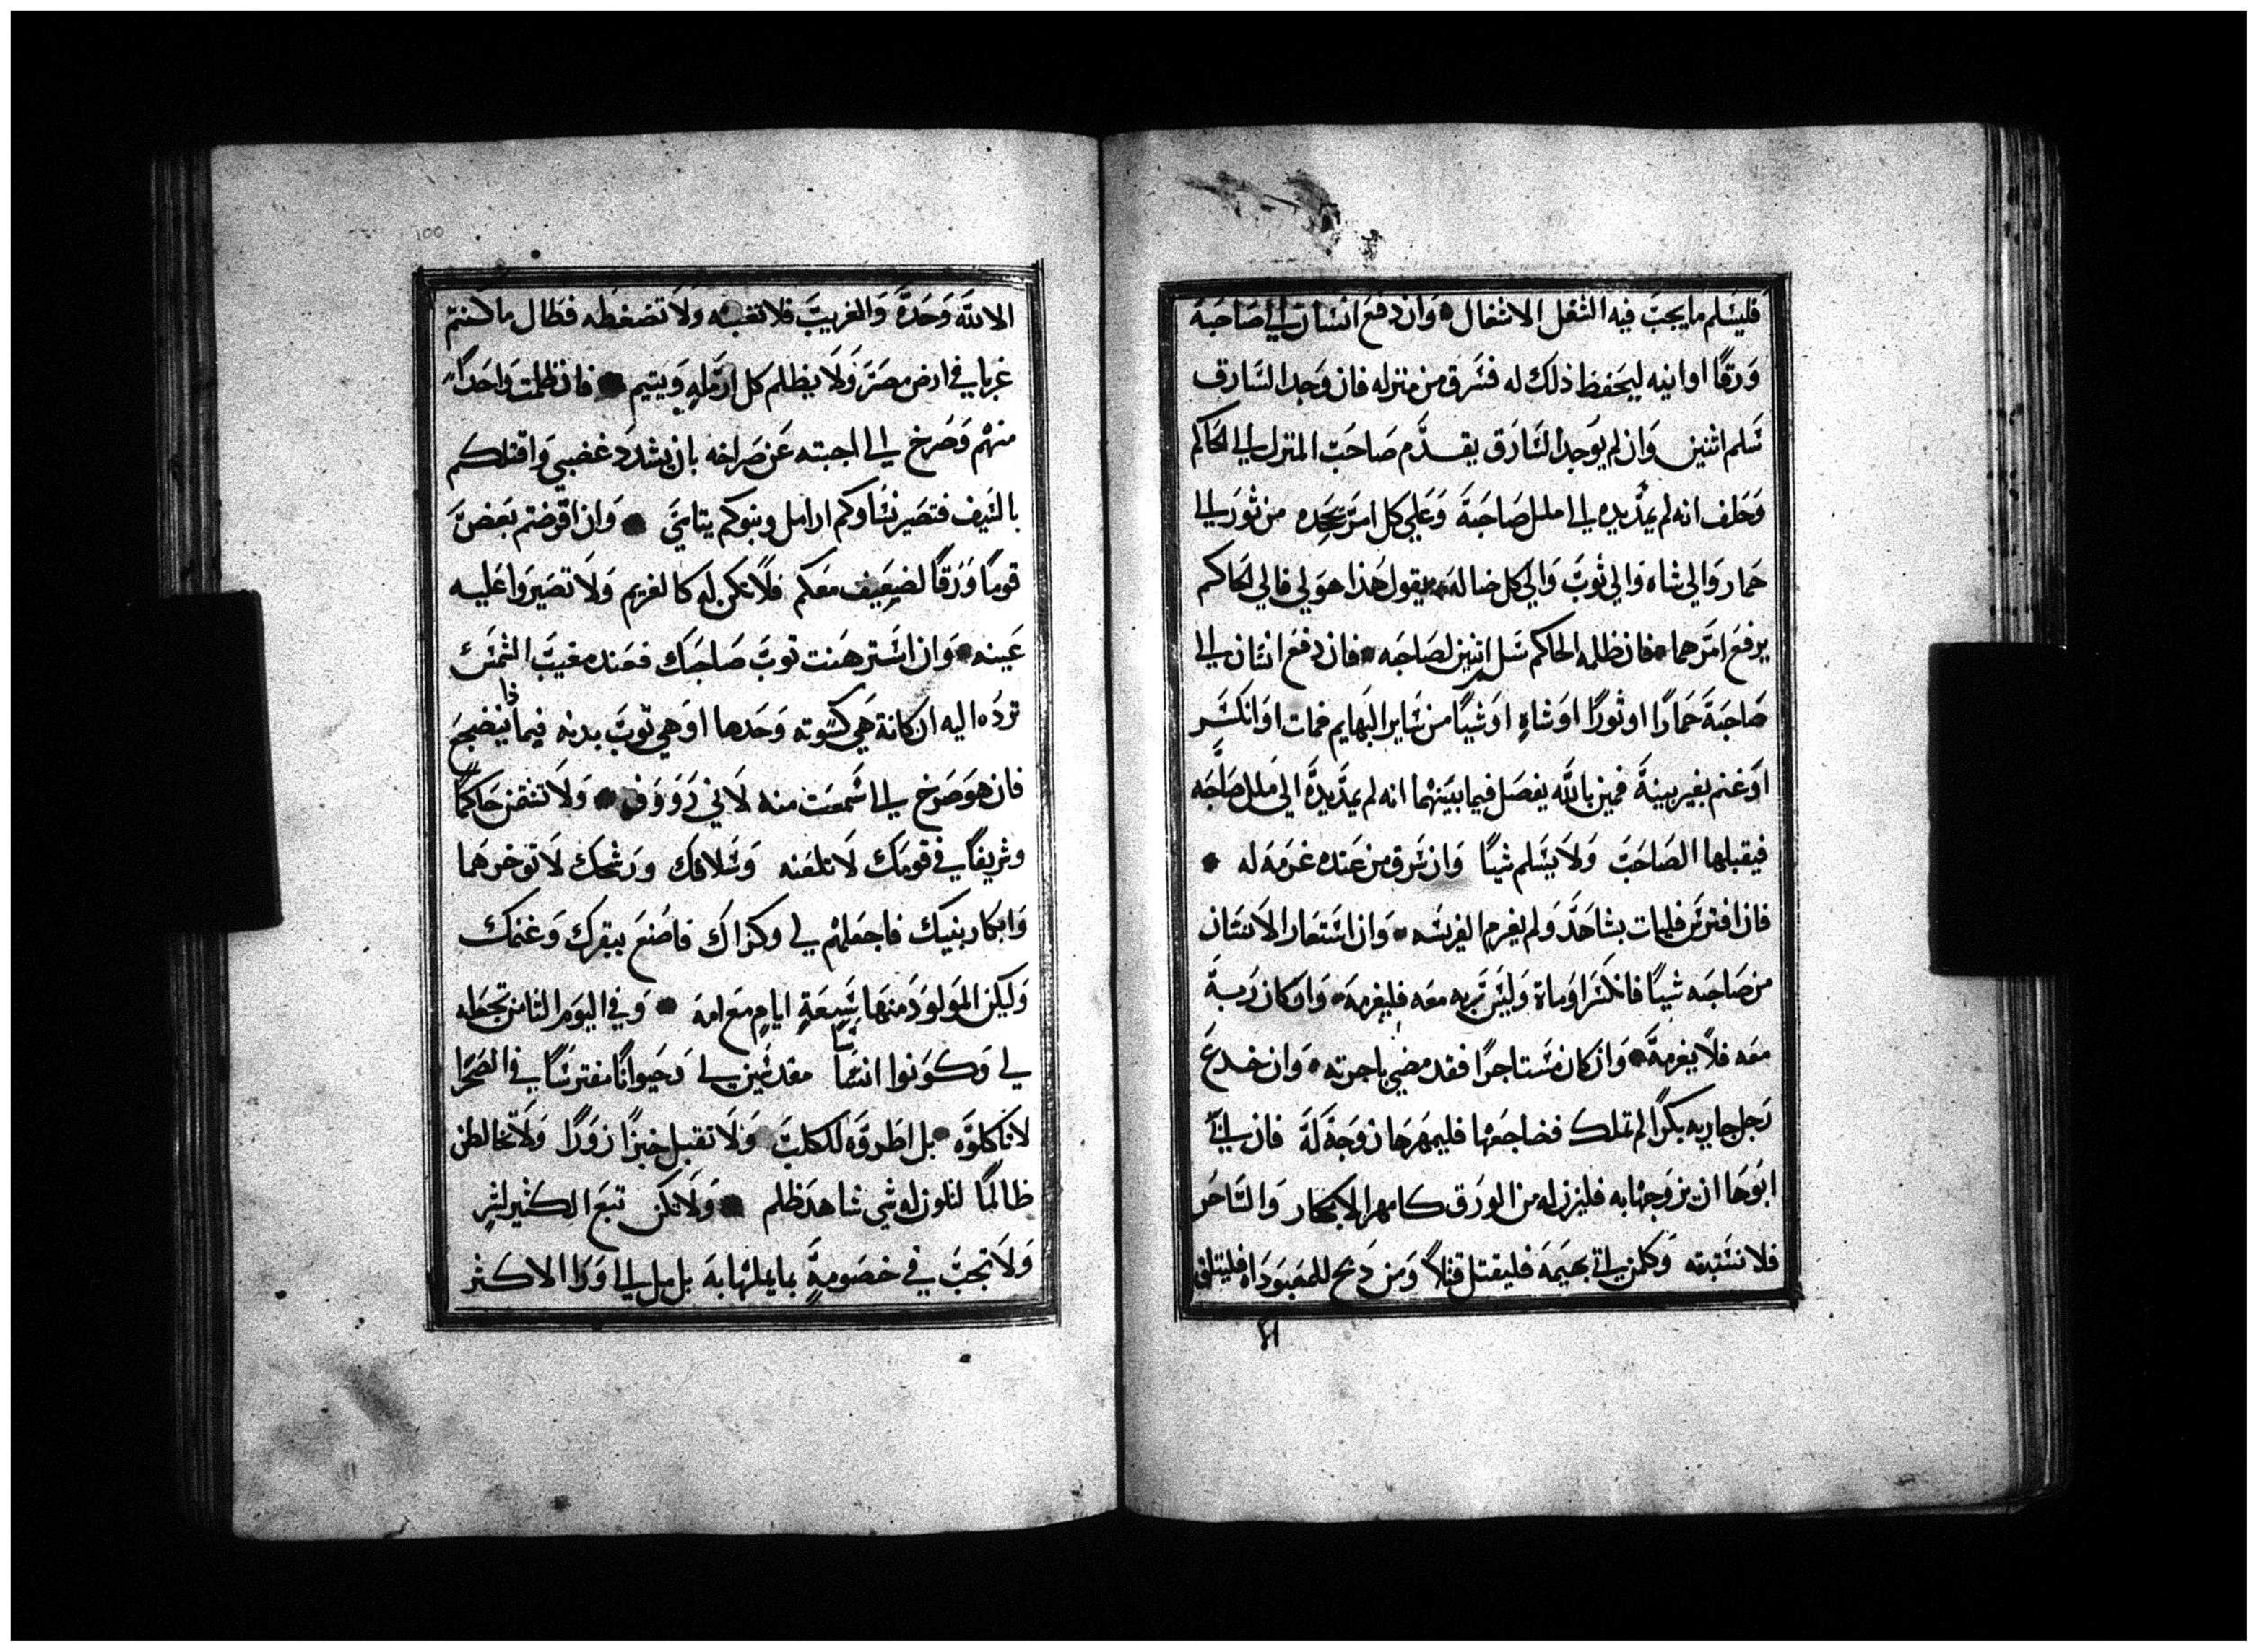 فليسلم ما يجب فيه الثغل الاثغال وان دفع انسان الي صاحبه
ورقا او انيه ليحفظ ذلك له فسرق من منزله فان وجد السارق
سلم اثنين وان لم يوجد السارق يقدم صاحب المنزل الي الحاكم
وحلف انه لم يمد يده الي املل صاحبة وعلي كل امر يجحده من ثور الي
حمار والي شاه والي ثوب والي كل ضاله يقول هذا هو لي فالي الحاكم
يرفع امرهما فان ظلمه الحاكم سلم اثنين لصاحبه فان دفع انسان الي
صاحبة حمارا او ثورا او شاه او شيا من ساير البهايم فمات او انكسر
او غنم بغير بينة فمين بالله يفصل فيما بينهما انه لم يمد يدة الي ملل صاحبه
فيقبلها الصاحب ولا يسلم شيا وان سرق من عنده غرمه له
فان افترس فليات بشاهد ولم يغرم الفريسه وان استعار الانسان
من صاحبه شيا فانكسر او ماة وليس ربه معه فليغرمه وان كان ربة
معه فلا يغرمة وان كان مستاجرا فقد مضي باجرته وان خدع
رجل جاريه بكرا لم تملك فضاجعها فليمهرها زوجة لة فان ابي
ابوها ان يزوجها به فليزن له من الورق كامهر الابكار والساحر
فلا تستبقه وكلمن ياتي بهيمه فليقتل قتلا ومن دبح للمعبوداه فليتلف
ا لا
100
الا لله وحدة والغريب فلا تغبنه ولا تضغطه فطال ما كنتم
غربا في ارض مصر ولا يظلم كل ارمله ويتيم فان ظلمت واحدا
منهم وصرخ الي اجبته عن صراخه بان يشدد غضبي واقتلكم
بالسيف فتصير نساوكم ارامل وبنوكم يتامي وان اقرضتم بعض
قوما ورقا لضعيف معكم فلا تكن له كالغريم ولا تصيروا عليه
عينه وان استرهنت ثوب صاحبك فعند مغيب الشمس
ترده اليه ان كانة هي كسوته وحدها او هي ثوب بدنه فيماذا ينضجع
فان هو صرخ الي اسمعت منه لاني رووف ولا تشتمن حاكما
وشريفا في قومك لا تلعنه وسلافك ورشحك لا توخرهما
وابكار بنيك فاجعلهم لي وكذاك فاصنع ببقرك وغنمك
وليكن المولود منها سبعة ايام مع امه وفي اليوم الثامن تجعله
لي وكونوا انتما مقدسين لي وحيوانا مفترسا في الصحرا
لا تاكلوه بل اطرقوه للكلب ولا تقبل خبرا زورا ولا تخالطن
ظالما لتلون له شي شاهد ظلم ولا تكن تبع الكثير لشر
ولا تجب في خصومة بما يلها به بل مل الي ورا الاكثر